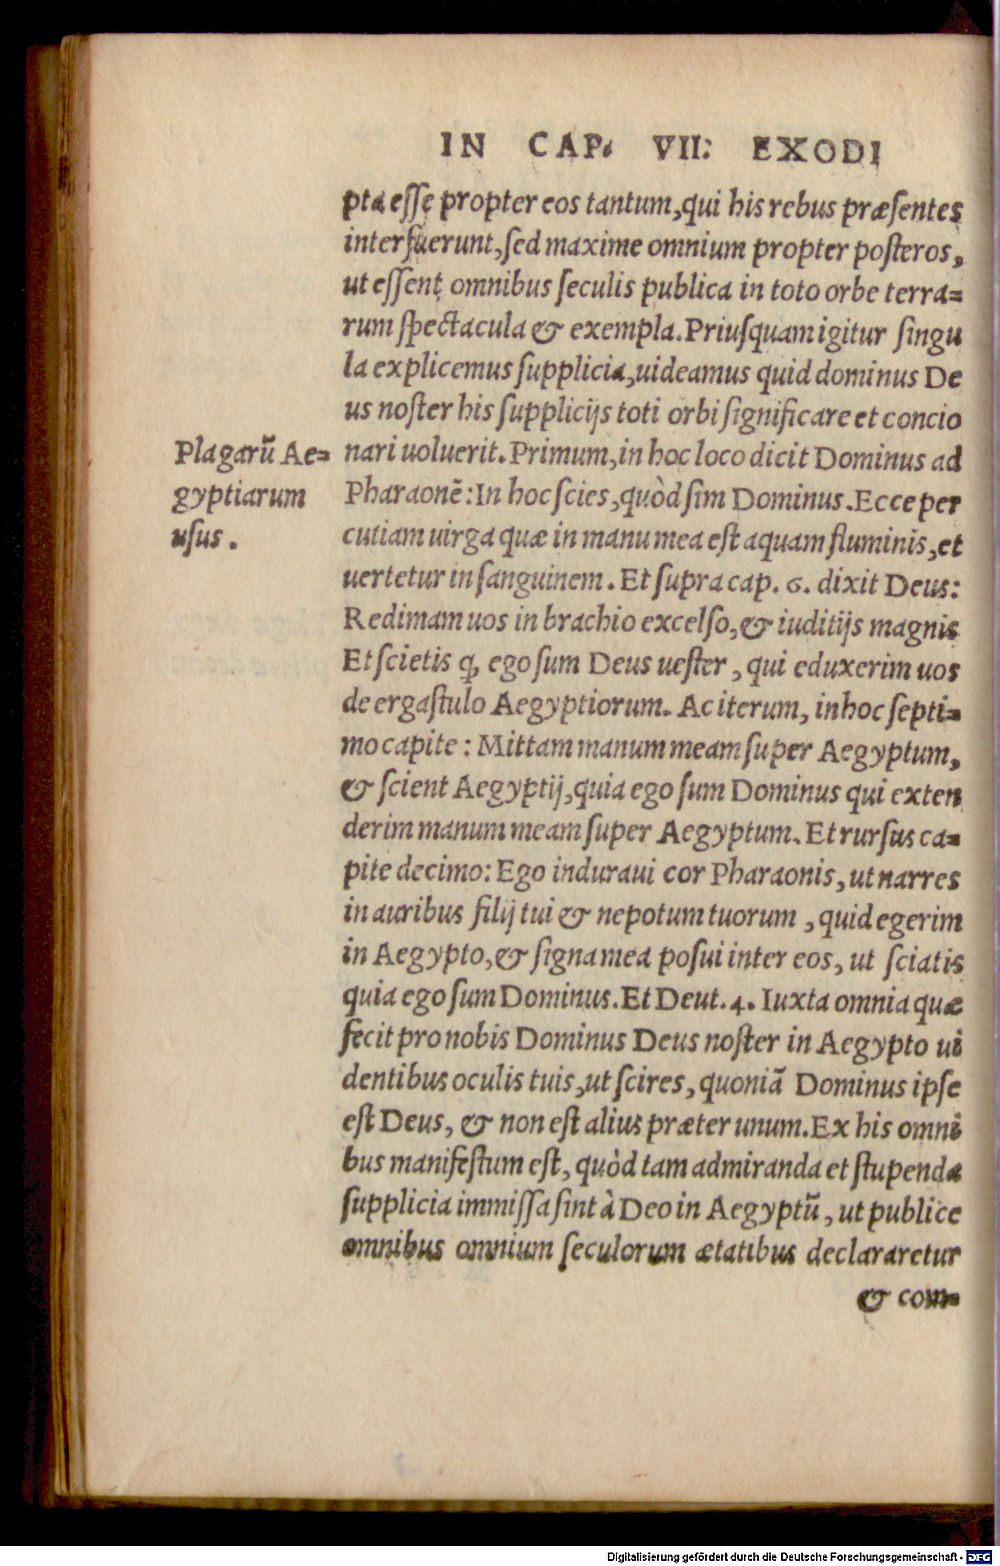 IN CAP. VII. EXODI
pta esse propter eos tantum, qui his rebus præsentes
interfuerunt, sed maxime omnium propter posteros,
ut essent omnibus seculis publica in toto orbe terra=
rum spectacula & exempla. Priusquam igitur singu
la explicemus supplicia, uideamus quid dominus De
us noster his supplicijs toti orbi significare et concio
Plagarũ Ae=
gyptiarum
usus.
nari uoluerit. Primum, in hoc loco dicit Dominus ad
Pharaonẽ: In hoc scies, quòd sim Dominus. Ecce per
cutiam uirga quæ in manu mea est aquam fluminis, et
uertetur in sanguinem. Et supra cap. 6. dixit Deus:
Redimam uos in brachio excelso, & iuditijs magnis
Et scietis ꝙ ego sum Deus uester, qui eduxerim uos
de ergastulo Aegyptiorum. Ac iterum, in hoc septi=
mo capite: Mittam manum meam super Aegyptum,
& scient Aegyptij, quia ego sum Dominus qui exten
derim manum meam super Aegyptum. Et rursus ca=
pite decimo: Ego induraui cor Pharaonis, ut narres
in auribus filij tui & nepotum tuorum, quid egerim
in Aegypto, & signa mea posui inter eos, ut sciatis
quia ego sum Dominus. Et Deut. 4. Iuxta omnia quæ
fecit pro nobis Dominus Deus noster in Aegypto ui
dentibus oculis tuis, ut scires, quoniã Dominus ipse
est Deus, & non est alius præter unum. Ex his omni
bus manifestum est, quòd tam admiranda et stupenda
supplicia immissa sint à Deo in Aegyptũ, ut publice
omnibus omnium seculorum ætatibus declararetur
& com=
Digitalisierung gefördert durch die Deutsche Forschungsgemeinschaft - DFG